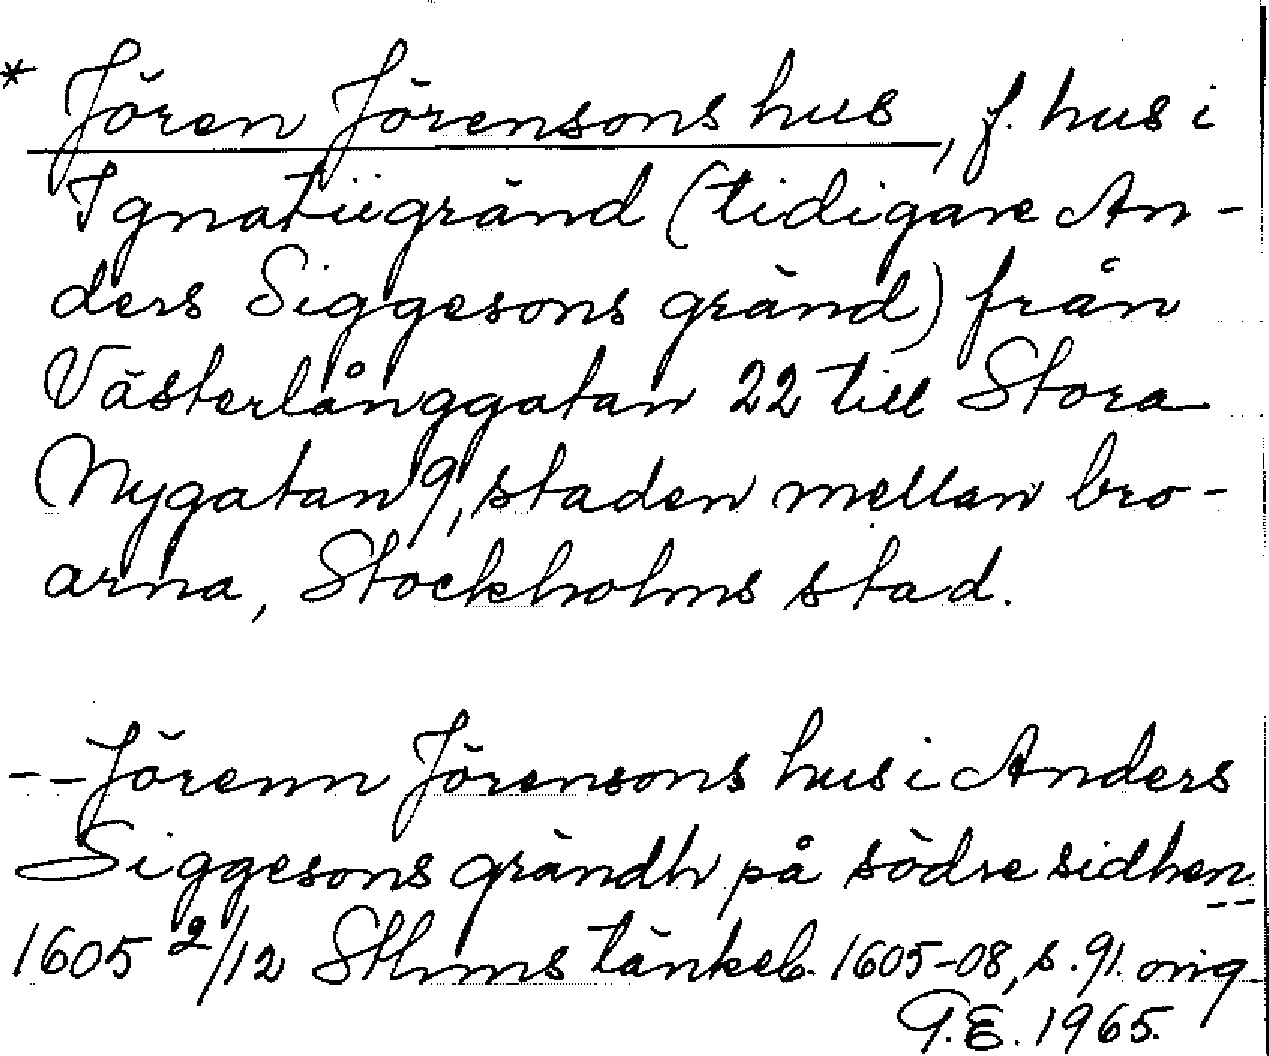 * Jören Jörensons hus, f. hus i
Ignatiigränd (tidigare An-
ders Siggesons gränd) från
Västerlånggatan 22 till Stora
Nygatan 9, staden mellan bro-
arna, Stockholms stad.
--Jörenn Jörensons hus i Anders
Siggesons grändh på södre sidhen--
1605 2/12 Sthms tänkeb. 1605-08, s. 91. orig
G.E. 1965.